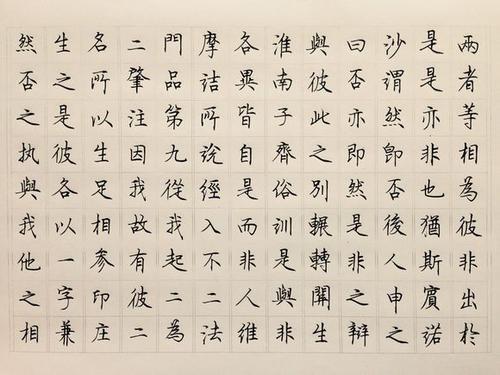 兩者等相為彼非出於
是是亦非也猶斯賓諾
沙謂然卽否後人申之
曰否亦即然是非之辯
與彼此之別輾轉關生
淮南子齊俗訓是與非
各異皆自是而非人維
摩詰所說經入不二法
門品第九從我起二為
二肇注因我故有彼二
名所以生足相參印庄
生之是彼各以一字兼
然否之执與我他之相